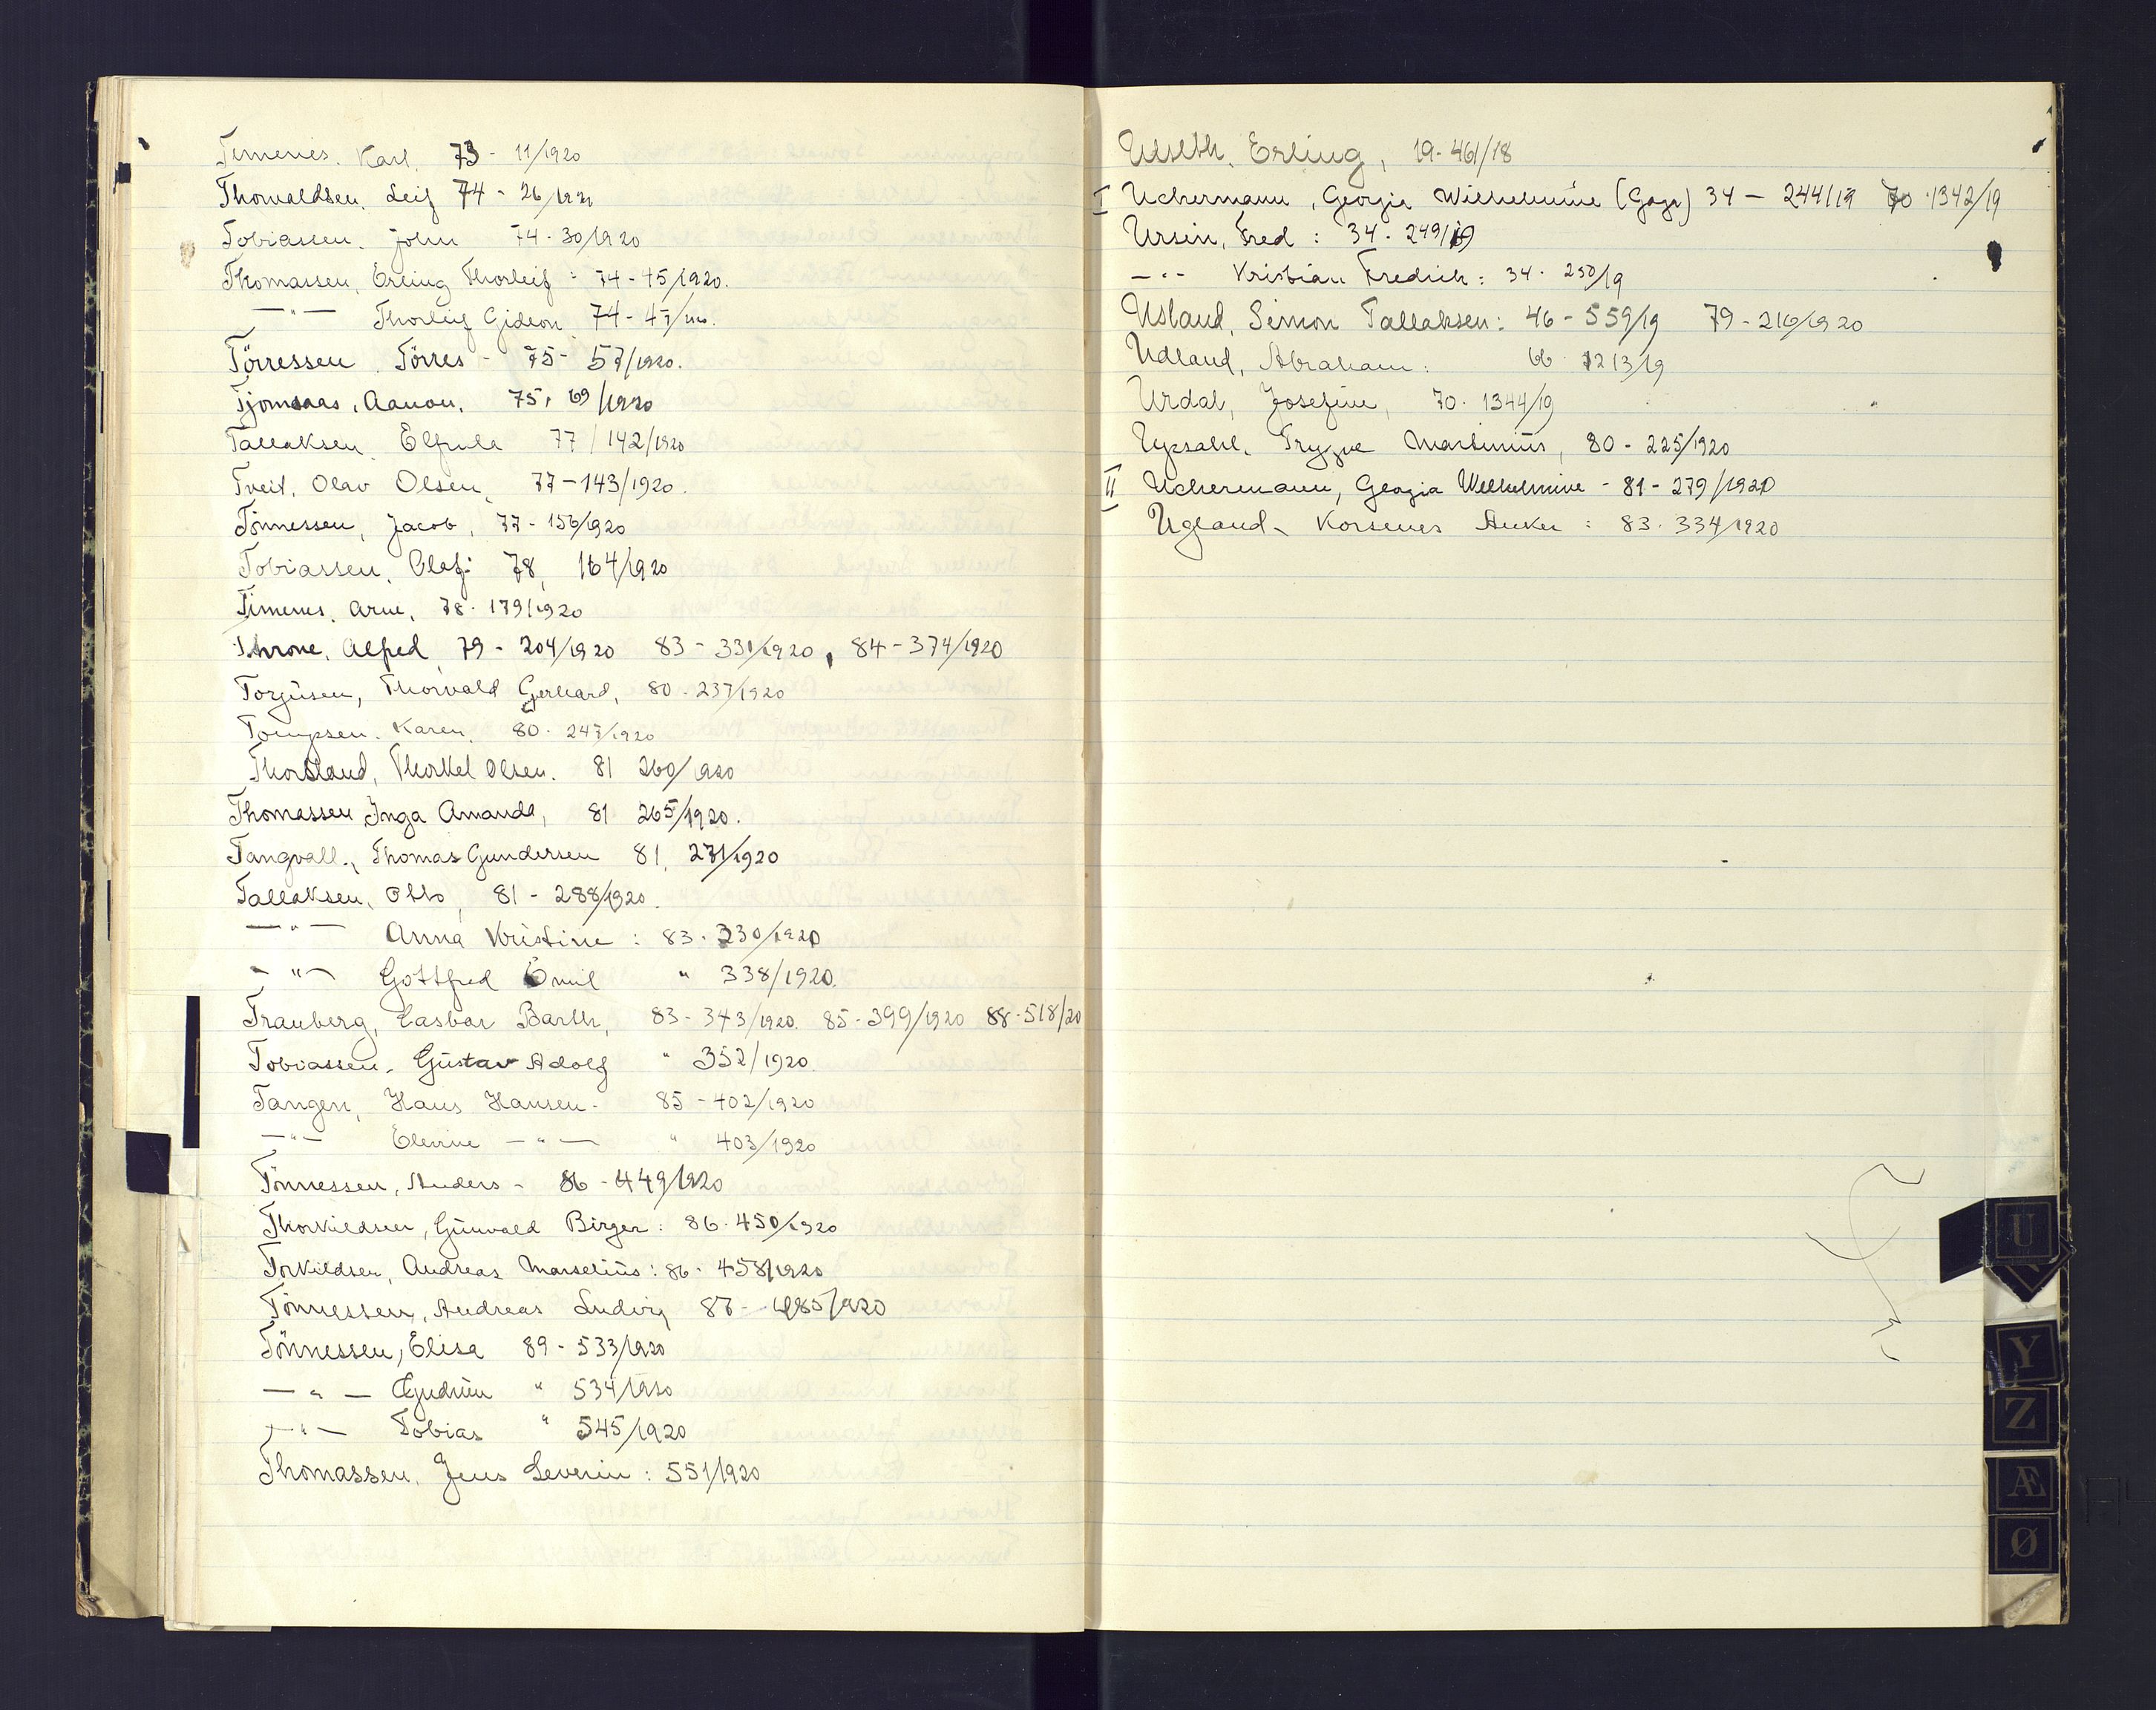 Timenes. Karl. 73 - 11/1920
Thorvaldsen. Leif 74 - 26/1920
Tobiassen. John 74 - 30/1920
Thomassen, Erling Thorleif : 74 - 45/1920.
— " — Thorleif Gideon 74 - 47/1920.
Törressen. Törres - 75 - 57/1920.
Tjomsaas, Aanon. 75, 69/1920
Tallaksen. 77/142/1920
Tveit, Olav Olsen, 77 - 143/1920.
Tönnessen, Jacob, 77 - 156/1920
Tobiassen, Olaf: 78, 164/1920
Timenes. Arne, 78 - 179/1920
Throne, Alfred, 79 - 204/1920 83 - 331/1920, 84 - 374/1920
Torjusen, Thorvald Gerhard, 80 - 237/1920
Karen, 80 - 247/1920
Thorsland, Thorkel Olsen. 81 260/1920
Thomassen Inga Amanda, 81 265/1920.
Tangvall, Thomas Gundersen 81, 271/1920
Tallaksen, Otto, 81 - 288/1920.
— " — Anna Kristine : 83 - 330/1920
— " — Gottfred Emil " 338/1920.
Tranberg, Casbar Barth, 83 - 343/1920. 85 - 399/1920 88 - 518/20
Tobiassen, Gustav Adolf " 352/1920.
Tangen, Hans Hansen - 85 - 402/1920
— " — Elevine — " — " 403/1920
Tönnessen, Anders - 86 - 449/1920
Thorkildsen, Gunvald Birger : 86 - 450/1920
Torkildsen, Andreas Marselius : 86 - 458/1920
Tönnessen, Andreas Ludvig 87 - 485/1920
Tönnessen, Elisa 89 - 533/1920
— " — Gudrun " 534/1920
— " — Tobias " 545/1920
Thomassen, Jens Severin : 551/1920
Ulseth, Erling, 19 - 461/18
I Uchermann, Georgia Wilhelmine (Gaga) 34 — 244/19 70 - 1342/19
Ursin, Fred : 34 - 249/19
— " — Kristian Fredrik : 34 - 250/19
Usland, Simon Tallaksen : 46 - 559/19 79 - 216/1920
Udland, Abraham : 66 - 1213/19
Urdal, Josefine, 70 - 1344/19
Upsahl, Trygve Martinius, 80 - 225/1920
II Uchermann, Georgia Wilhelmine - 81 - 279/1920
Ugland, Korsenes Anker : 83 - 334/1920
U
Y
Z
Æ
Ø